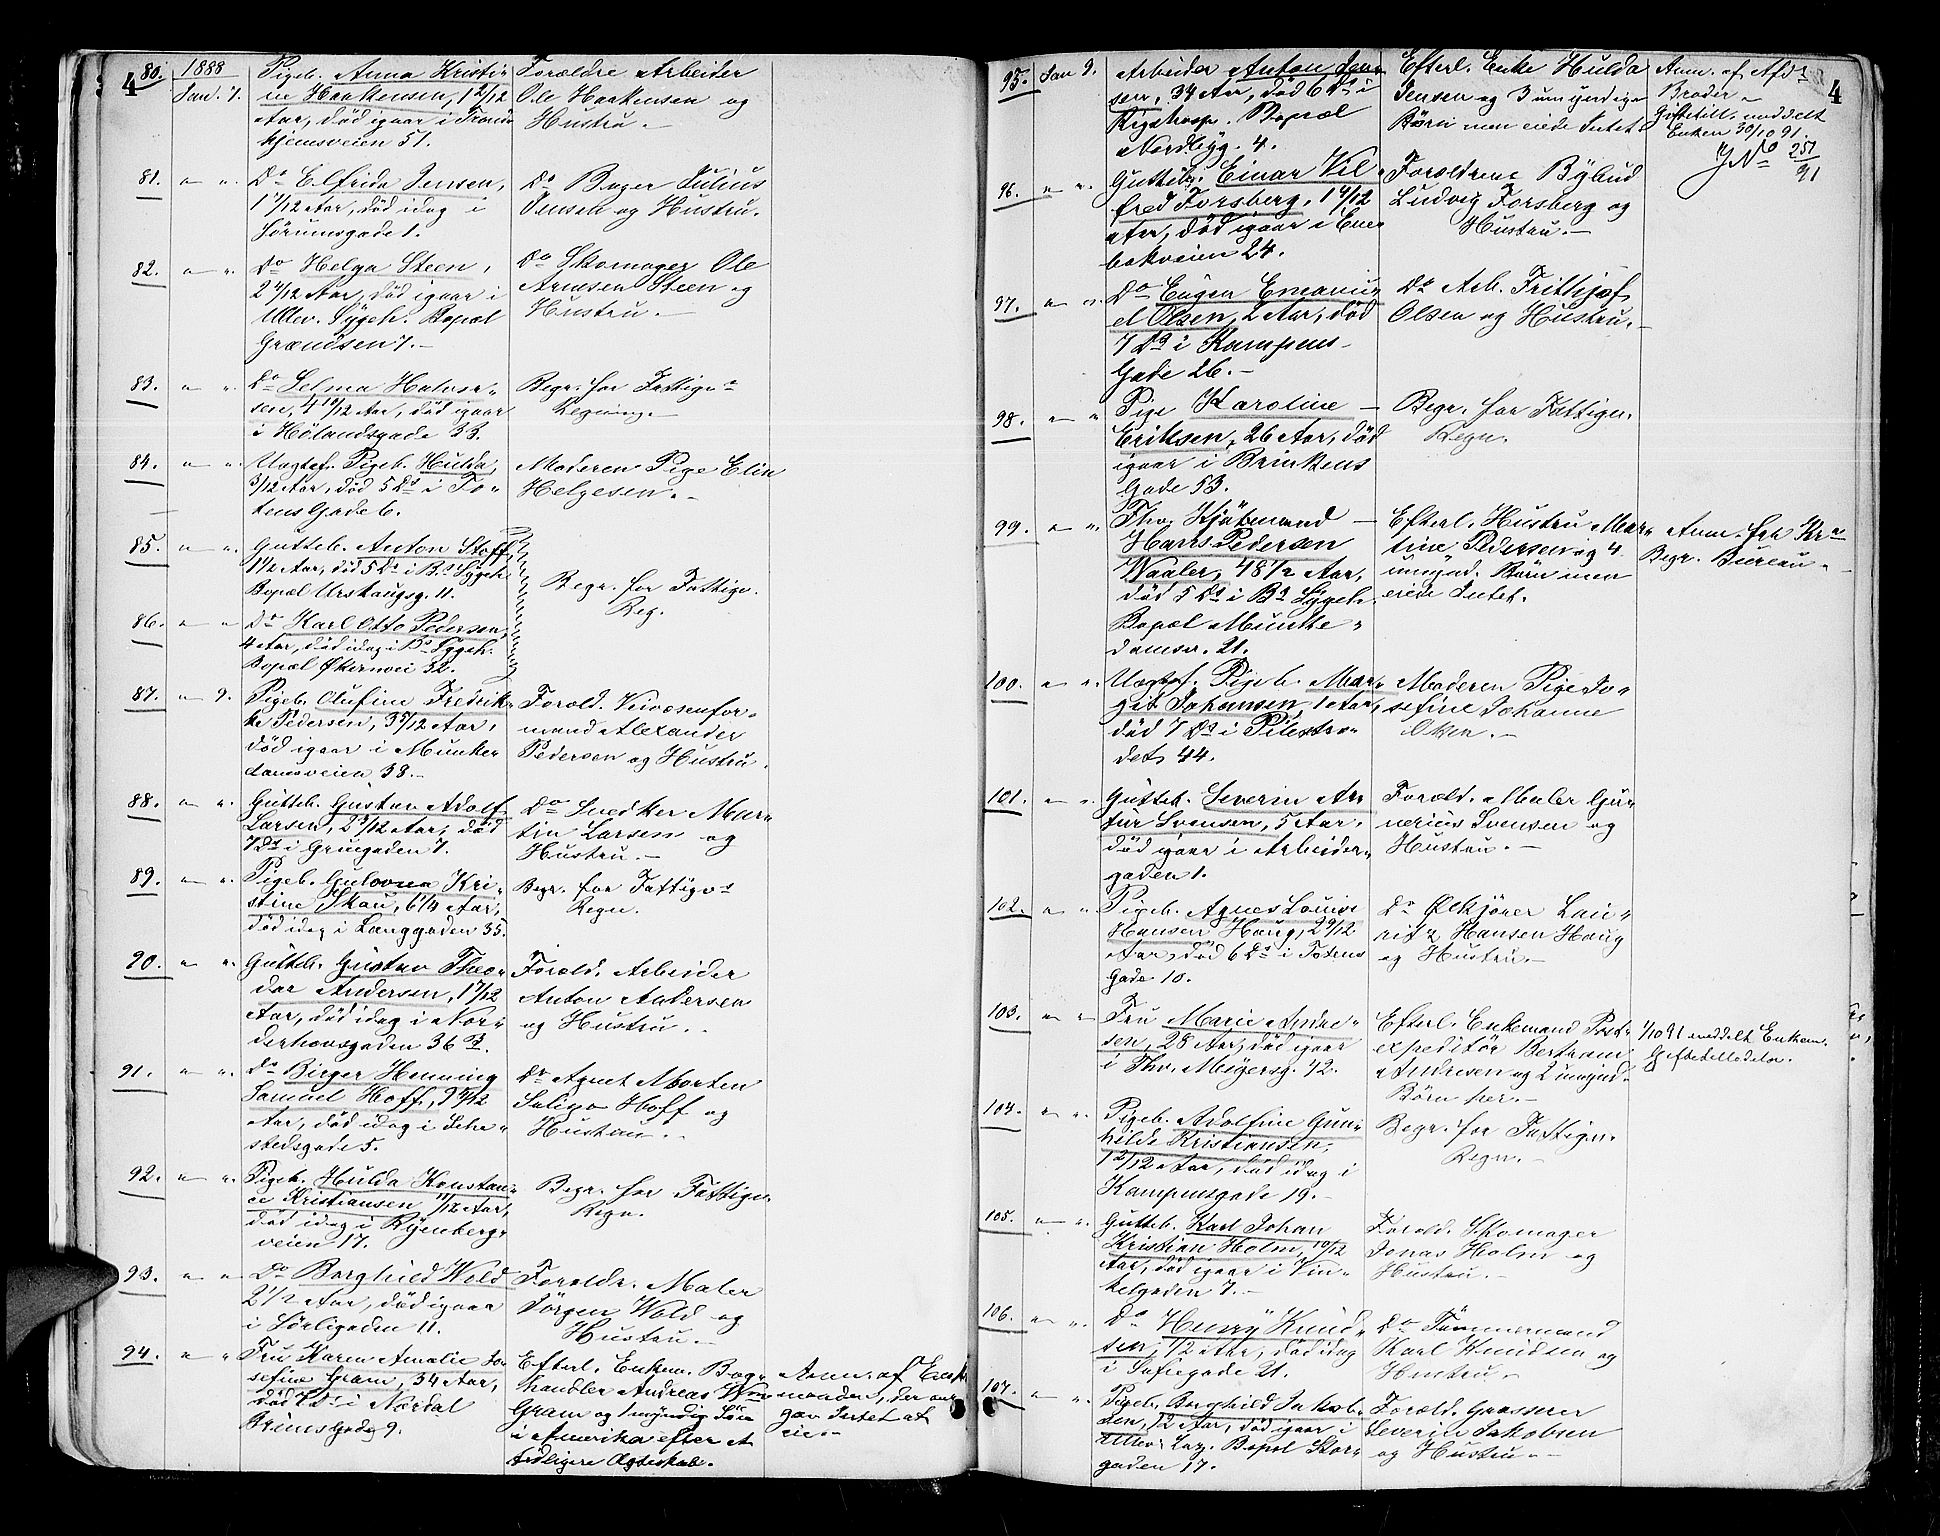 4
80.
1888
Jan. 7.
Pigeb. Anna Kristi-
ne Haakensen, 1 2/12
Aar, död igaar i Trond
hjemsveien 51.
Forældre Arbeider
Ole Haakensen og
Hustru. —
81. " "
Do Elfrida Jensen,
1 7/12 Aar, död idag i
Sörumsgade 1.
Do Bager Julius
Jensen og Hustru.
82. " "
Do Helga Steen,
2 4/12 Aar, död igaar i
Ullev. Sygeh. Bopæl
Grændsen 7. —
Do Skomager Ole
Arnesen Steen og
Hustru. —
83. " "
Do Selma Halvor-
sen, 4 10/12 Aar, död igaar
i Hölandsgade 33.
Begr. for Fattigv.
Regning. —
84. " "
Uægtef. Pigeb. Hulda,
3/12 Aar, död 5 Ds i To-
tens Gade 6.
Moderen Pige Elin
Helgesen. —
85. " "
Gutteb. Anton Stoff,
1 1/2 Aar, död 5 Ds i Bs Sygeh.
Bopæl Urskougsg. 11.
Begr. for Fattigv.
Reg.
86. " "
Do Karl Otto Pedersen,
4 Aar, död idag i Bs Sygeh.
Bopæl Økernvei 32.
87. " 9.
Pigeb. Olufine Fredrik-
ke Pedersen, 3 5/12 Aar,
död igaar i Munke
damsveien 38. —
Foræld. Veivæsenfor-
mand Alexander
Pedersen og Hustru.
88. " "
Gutteb. Gustav Adolf
Larsen, 2 3/12 Aar, död
7 Ds i Gruegaden 7.
Do Snedker Mar-
tin Larsen og
Hustru. —
89. " "
Pigeb. Gulovna Kri-
stine Skau, 6 1/4 Aar,
död idag i Langgaden 35.
Begr. for Fattigvs
Regn.
90. " "
Gutteb. Gustav Theo-
dor Andersen, 1 7/12
Aar, död idag i Nor-
derhovsgaden 36 B.
Foræld. Arbeider
Anton Andersen
og Hustru. -
91. " "
Do Birger Henning
Samuel Hoff, 9 9/12
Aar, död idag i Schu-
stedsgade 5.
Do Agent Morten
Seligo Hoff og
Hustru. -
92. " "
Pigeb. Hulda Konstan-
ce Kristiansen 11/12 Aar,
död idag i Ryenberg-
veien 17.
Begr. for Fattigv.
Regn.
93. " "
Do Borghild Wold
2 1/2 Aar, död igaar
i Sörligaden 11.
Forældr. Maler
Jörgen Wold og
Hustru. —
94. " "
Fru Karen Amalie Jo-
sefine Gram, 34 Aar,
död 7 Ds i Nordal
Bruns Gade 9.
Efterl. Enkem. Bog-
handler Andreas Wm
Gram og 1 myndig Sön
i Amerika efter et
tidligere Ægteskab.
Anm. af Enke
manden, der op
gav Intet at
eie. -
4
95. Jan 9.
Arbeider Anton Jen-
sen, 34 Aar, död 6 Ds i
Rigshosp. Bopæl
Nordbyg. 4.
Efterl. Enke Hulda
Jensen og 3 umyndige
Börn men eiede Intet.
Anm. af Afds
Broder. —
Giftetill. meddelt
Enken 30/10 91.
J No 251/91
96. " "
Gutteb. Einar Vil-
fred Forsberg, 1 4/12
Aar, död igaar i Ene-
bakveien 24.
Forældrene Bybud
Ludvig Forsberg og
Hustru. —
97. " "
Do Eugen Emanu-
el Olsen, 2 Aar, död
7 Ds i Kampens-
Gade 26. —
Do Arb. Frithjof
Olsen og Hustru. —
98. " "
Pige Karoline —
Eriksen, 26 Aar, död
igaar i Brinkens
Gade 53.
Begr. for Fattigv.
Regn.
99. " "
Fhv. Kjöbmand —
Hans Pedersen
Waaler, 48 1/2 Aar,
död 5 Ds i Bs Sygeh.
Bopæl Munke-
damsv. 21.
Efterl. Hustru Mar-
tine Pedersen og 4
umynd. Börn men
eiede Intet.
Anm. fra Kra
Begr. Bureau. -
100. " "
Uægtef. Pigeb. Mar-
git Johansen, 1 Aar,
död 7 Ds i Pilestræ-
det 44.
Moderen Pige Jo-
sefine Johanne
Olsen. —
101. " "
Gutteb. Severin Ar-
tur Svensen, 5 Aar,
död igaar i Arbeider-
gaden 1.
Foræld. Maler Gu-
nerius Svensen og
Hustru. —
102. " "
Pigeb. Agnes Louise
Hansen Haug, 2 9/12
Aar, död 6 Ds i Totens
Gade 10.
Do Ølkjörer Lau-
ritz Hansen Haug
og Hustru. —
103. " "
Fru Marie Andre-
sen, 28 Aar, död igaar
i Thv. Meÿersg. 12.
Efterl. Enkemand Post-
expeditör Bertram
Andresen og 2 umynd.
Börn her. —
1/10 91 meddelt Enkem.
Giftetilladelse.
104. " "
Pigeb. Adolfine Gun-
hilde Kristiansen,
1 2/12 Aar, död idag i
Kampensgade 19. —
Begr. for Fattigv.
Regn. —
105. " "
Gutteb. Karl Johan
Kristian Holm, 10/12
Aar, död igaar i Vin-
kelgaden 7. —
Foræld. Skomager
Jonas Holm og
Hustru. —
106. " "
Do Henry Knud-
sen, 1/2 Aar, död idag
i Sofiegade 21.
Do Tömmermand
Karl Knudsen og
Hustru. -
107. " "
Pigeb. Borghild Jakob-
sen, 12 Aar, död igaar i
Ullev. Laz. Bopæl Stor-
gaden 17.
Foræld. Grosserer
Severin Jakobsen
og Hustru. -